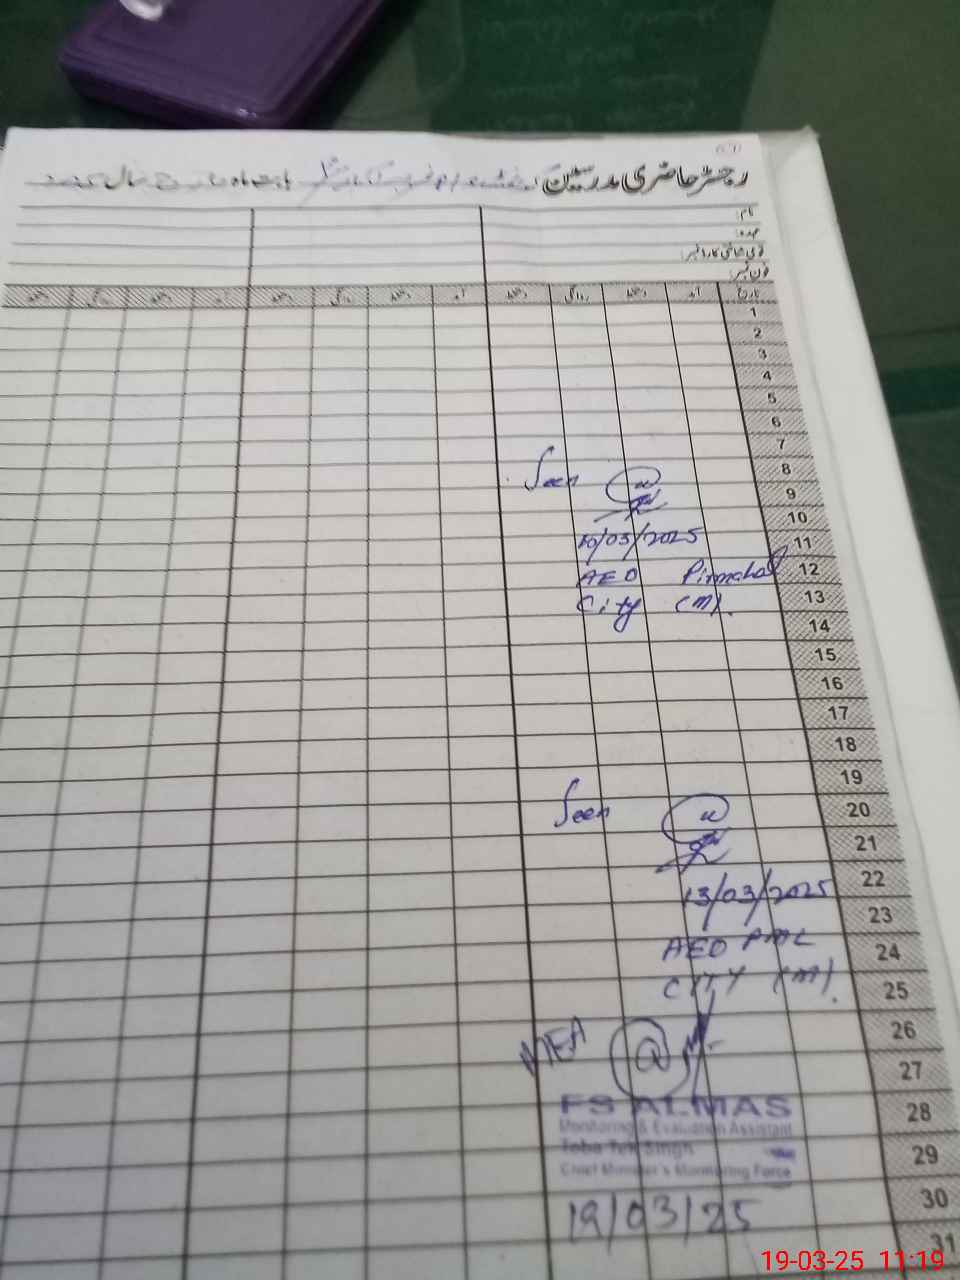 رجسٹر حاضری مدرسین
بابت ماہ مارچ سال 2025
نام:
عہدہ:
قومی شناختی کارڈ نمبر:
فون نمبر:
تاریخ آمد دستخط روانگی دستخط آمد دستخط روانگی دستخط آمد دستخط روانگی دستخط
1
2
3
4
5
6
7
8
Seen
9
10
10/03/2025
11
AEO Pirmahal
12
City (M).
13
14
15
16
17
18
19
Seen
20
21
13/03/2025
22
23
AEO PML
24
CITY (M).
25
26
MEA
27
FS ALMAS
28
Monitoring & Evaluation Assistant
Toba Tek Singh
29
Chief Minister's Monitoring Force
30
19/03/25
31
19-03-25 11:19